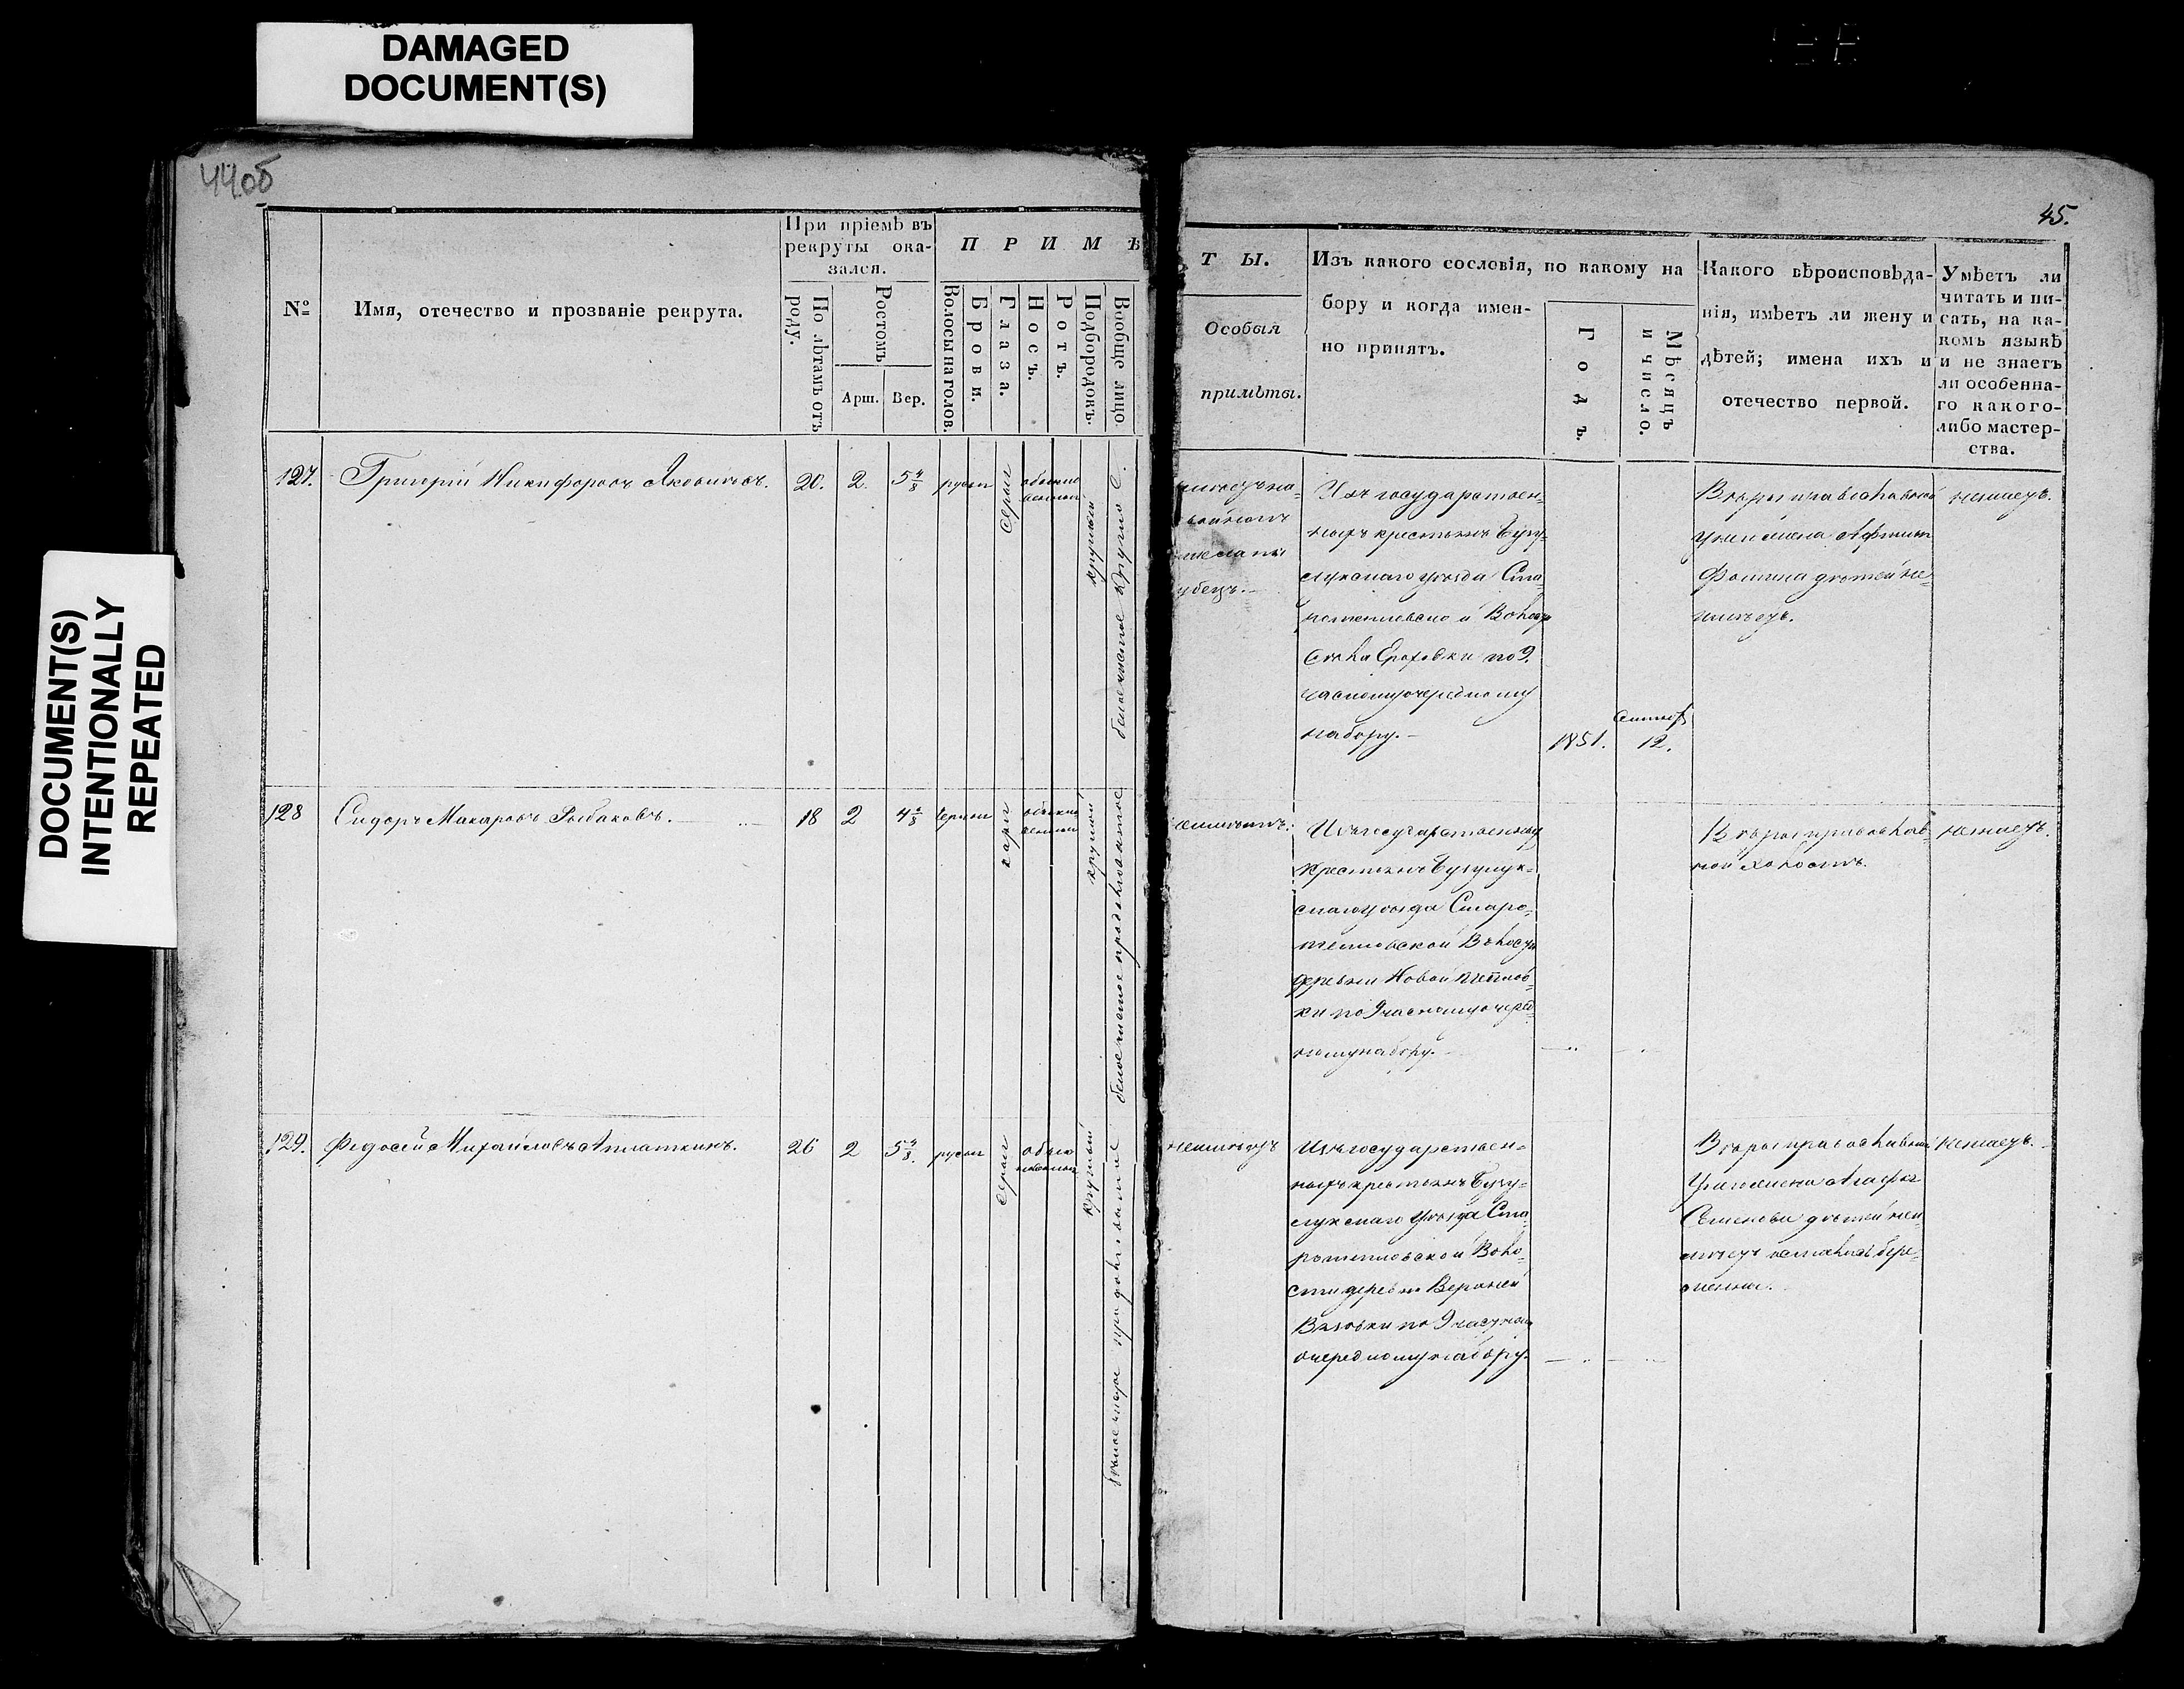 DAMAGED
DOCUMENT(S)
DOCUMENT(S)
INTENTIONALLY
REPEATED
44об
45.
№
Имя, отечество и прозваніе рекрута.
При пріемѣ въ
рекруты ока-
зался.
По лѣтамъ отъ
роду.
Ростомъ
Арш.
Вер.
ПРИМѢ
Волосы на голов.
Брови.
Глаза.
Носъ.
Ротъ.
Подбородокъ.
Вообще лицо.
ТЫ.
Особыя
примѣты.
Изъ какого сословія, по какому на
бору и когда имен-
но принятъ.
Годъ.
Мѣсяцъ
и число.
Какого вѣроисповѣда-
нія, имѣетъ ли жену и
дѣтей; имена ихъ и
отечество первой.
Умѣетъ ли
читать и пи-
сать, на ка-
комъ языкѣ
и не знаетъ
ли особенна-
го какого-
либо мастер-
ства.
127.
Григорій Никифоровъ
20.
2.
5 4/8
русыя
серыя
обыкно
венныя
круглый
Изъ государствен-
ныхъ крестьянъ Бузу-
лукскаго уѣзда Ста-
ротепловской Волос
Села Ероховки по 9.
частному очередному
набору.-
1851.
12.
Вѣры православной
у него жена
Фомина дѣтей не-
имѣетъ.
неумеетъ.
128
Сидоръ Макаровъ Рыбаковъ.
18
2
4
черныя
карія
обыкно
венныя
круглый
белое чистое продолговатое
неимѣетъ.
Изъ государственныхъ
Крестьянъ Бузулук-
скаго уѣзда Старо-
тепловской Волости
деревни Новой
ки по 9 частному очеред-
ному набору.
Вѣры православ-
ной холостъ.
неумеетъ.
129.
Федосей Михайловъ
26
2
5 4/8
русыя
серыя
обыкно
венныя
круглый
неимѣетъ
Изъ государствен-
ныхъ крестьянъ Бузу-
лукскаго Уѣзда Ста-
ротепловской Воло-
сти деревни Верхней
Вязовки по 9 частному
очередному набору.
Вѣры православной
У него жена
Семенова дѣтей не
имѣетъ
неумеетъ.